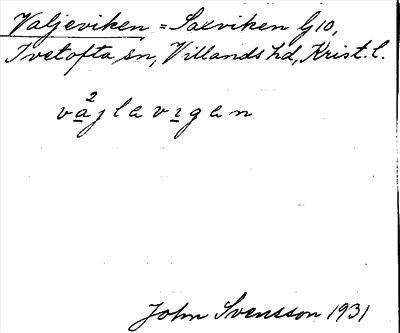 Valjeviken = Saxviken G 10,
Ivetofta sn, Villands hd, Krist. l.
va²jlavıgan
John Svensson 1931